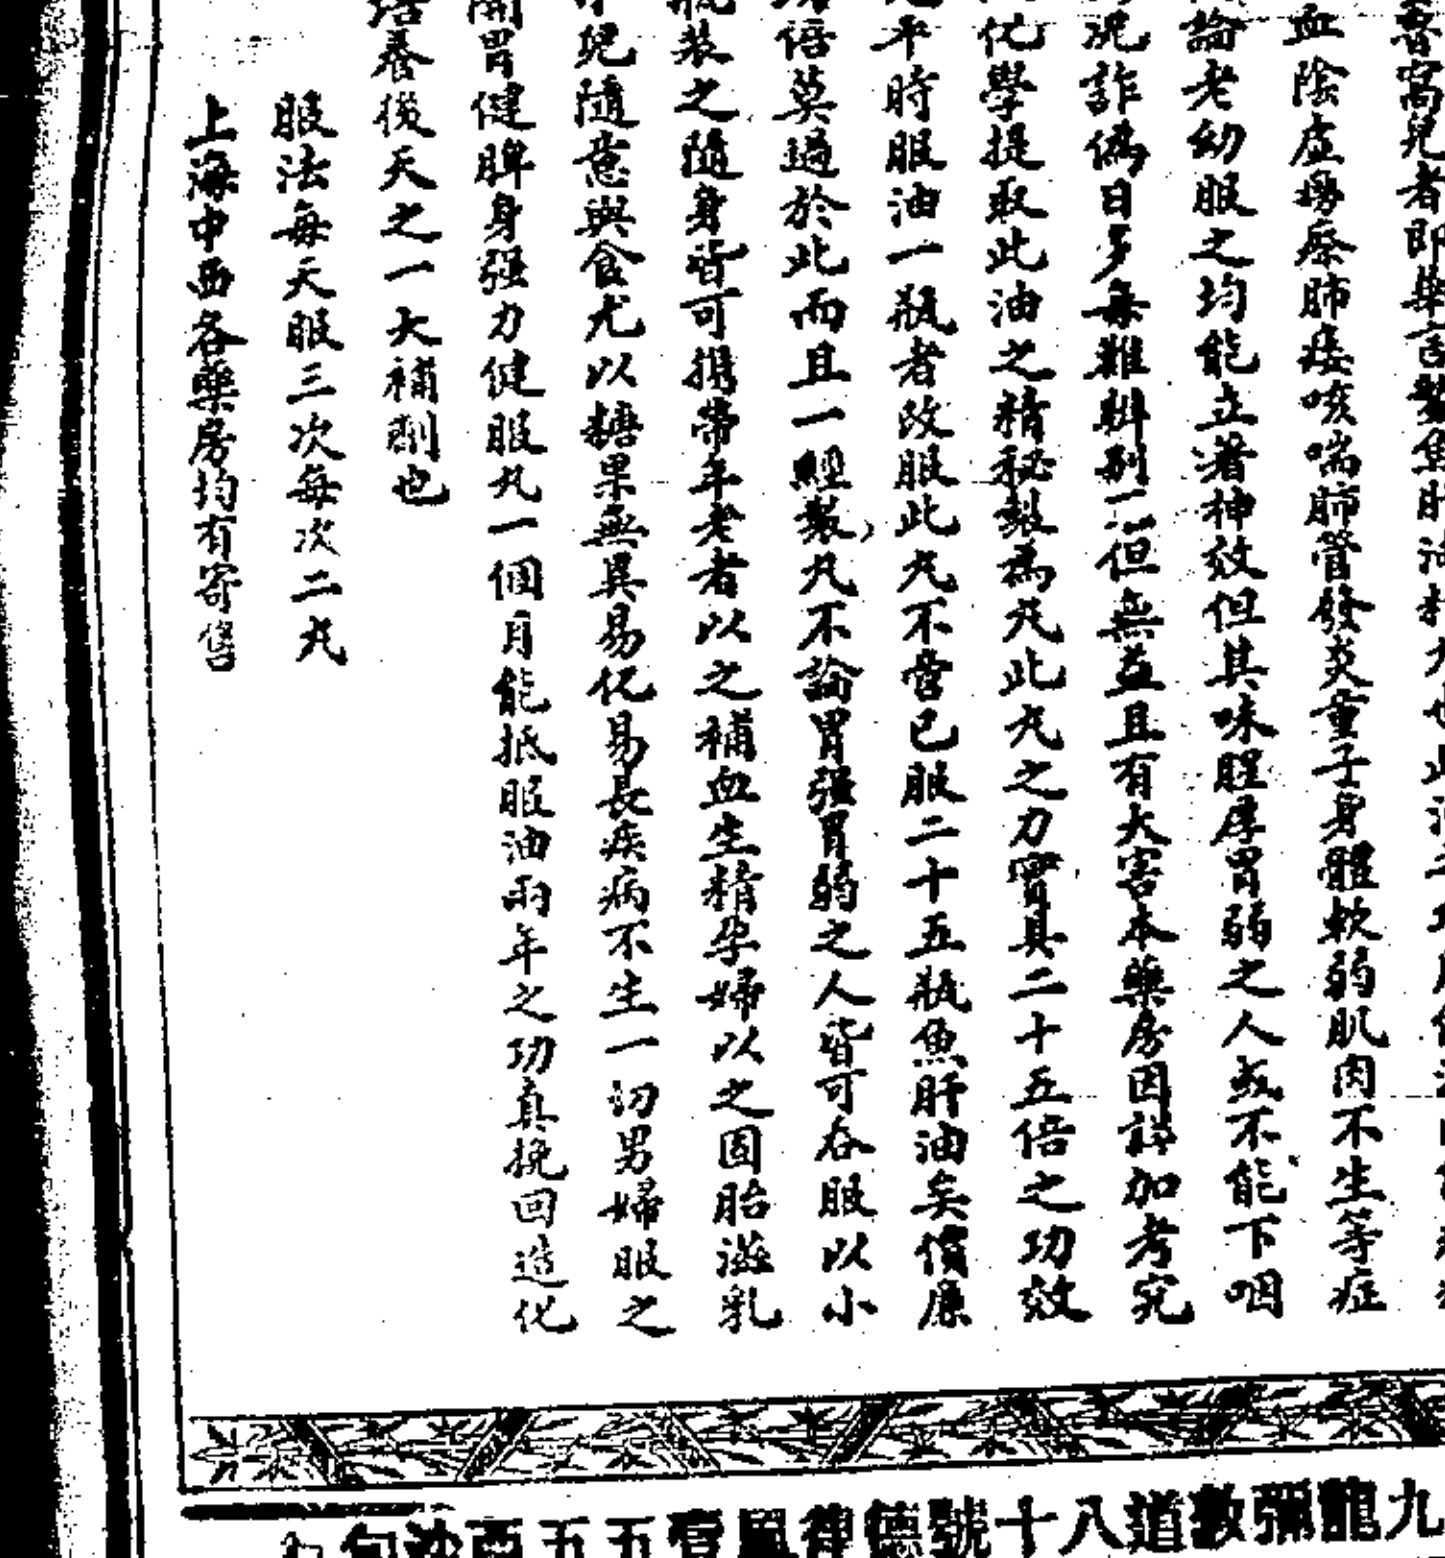 窩兒者即華言鰵魚肝油
血陰虛癆瘵肺痿咳喘肺管發炎童子身體軟弱肌肉不生等症
論老幼服之均能立著神效但其味腥厚胃弱之人或不能下咽
况詐偽日多每難辨別不但無益且有大害本藥房因詳加考究
化學提取此油之精秘製為丸此丸之力實具二十五倍之功效
平時服油一瓶者改服此丸不啻已服二十五瓶魚肝油矣價廉
倍莫過於此而且一經製丸不論胃強胃弱之人皆可吞服以小
瓶裝之隨身皆可攜帶年老者以之補血生精孕婦以之固胎滋乳
兒隨意與食尤以糖果無異易化易長疾病不生一切男婦服之
開胃健脾身强力健服丸一個月能抵服油兩年之功真挽回造化
培養後天之一大補劑也
服法每天服三次每次二丸
上海中西各藥房均有寄售
九龍彌敦道八十號德律風壹五五西